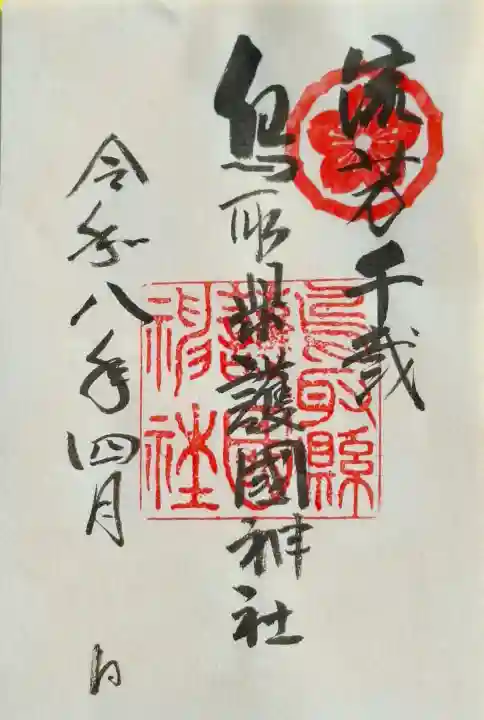 流芳千載
鳥取県護國神社
鳥取縣護國神社
令和八年四月 日